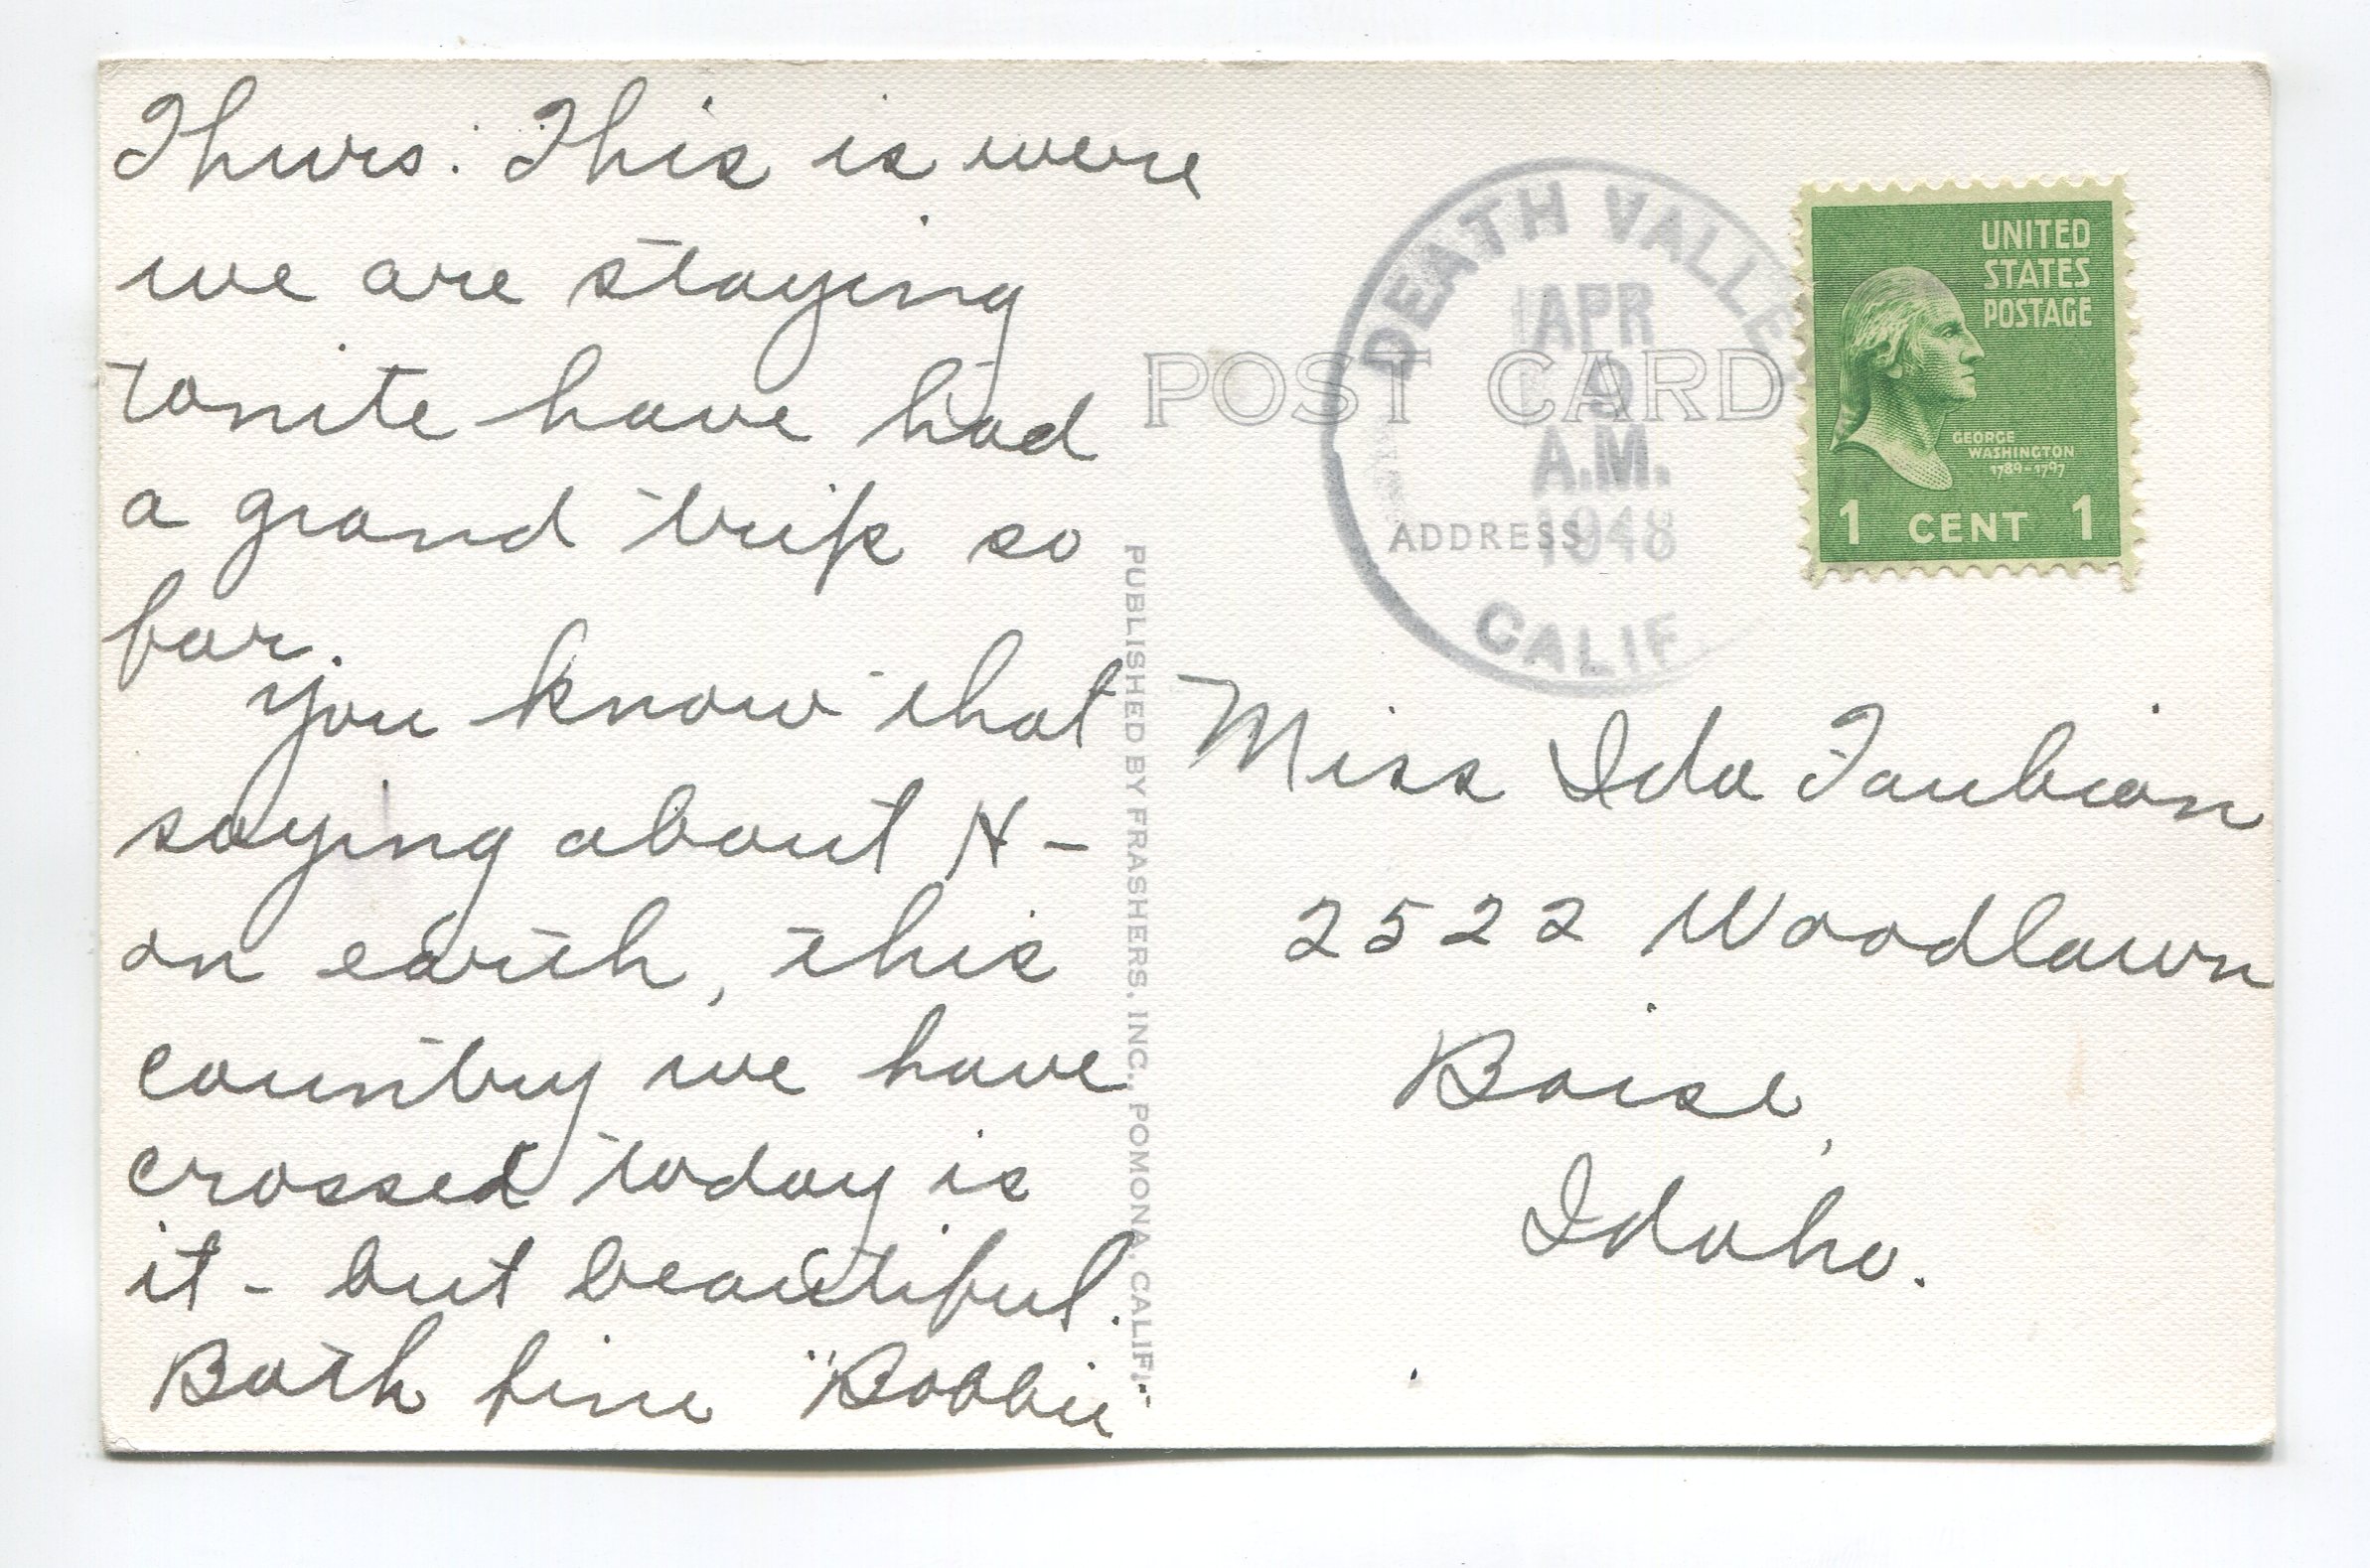 Thurs. This is were
we are staying
tonite have had
a grand trip so
far.
you know that
saying about H-
on earth, this
country we have
crossed today is
it - but beautiful.
Both fine "Bobbie"
PUBLISHED BY FRASHERS, INC., POMONA, CALIF.
POST CARD
ADDRESS
DEATH VALLEY
APR
9
A.M.
1948
CALIF.
UNITED
STATES
POSTAGE
GEORGE
WASHINGTON
1789-1797
1 CENT 1
Miss Ida Taubian
2522 Woodlawn
Boise,
Idaho.